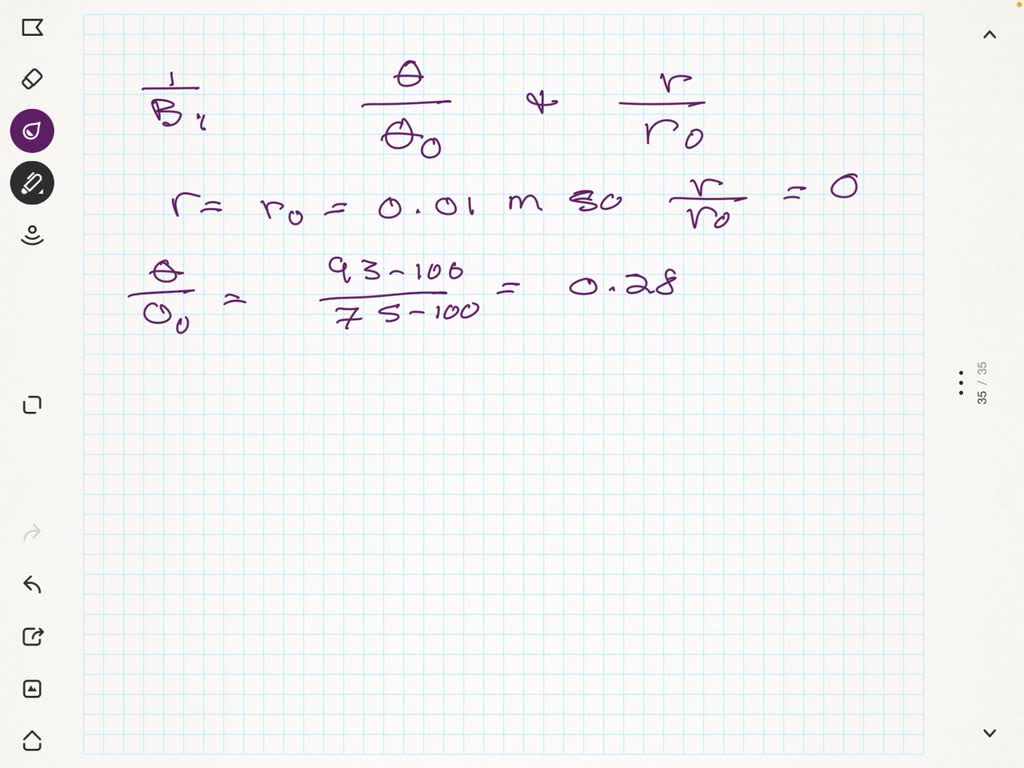 1/Bi θ/θ0 & r/r0
r = r0 = 0.01 m so r/r0 = 0
θ/θ0 = 93-100/75-100 = 0.28
35 / 35